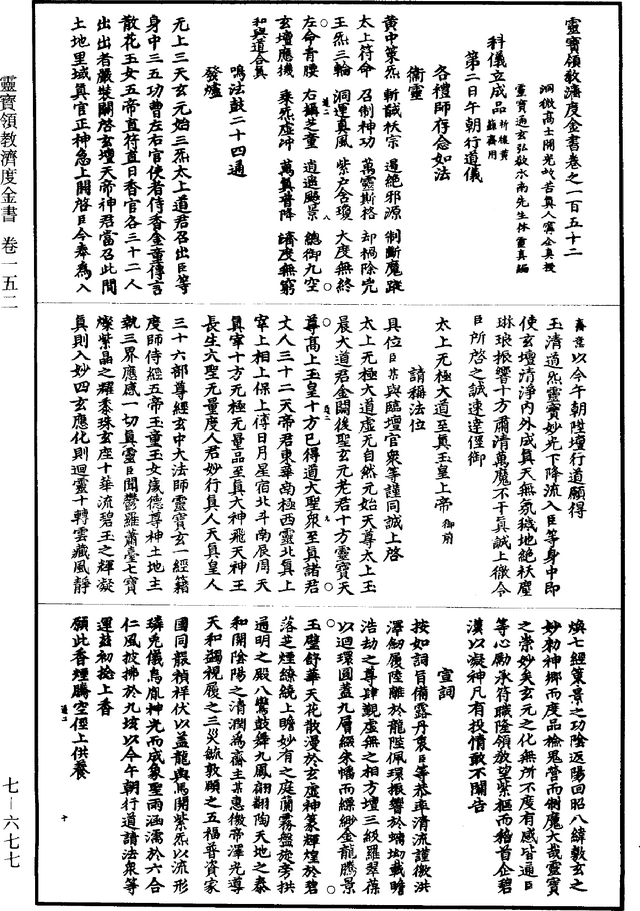 靈寶領教濟度金書卷之一百五十二
洞微高士開光救苦真人寗全真授
靈寶通玄弘教水南先生林靈真編
科儀立成品
第二日午朝行道儀
各禮師存念如法
衛靈
黃中策炁 斬馘袄宗 邊絕邪源 制斷魔蹤
太上符命 召制神功 萬靈斯格 却禍除兇
玉炁三輪 洞運真風 紫戶含瓊 大度無終
左命青腰 右攝芝童 逍遙飈景 總御九空
玄壇應機 乘炁虛沖 萬真普降 濟度無窮
和與道合真
鳴法鼓二十四通
發爐
無上三天玄元始三炁太上道君召出臣等
身中三五功曹左右官使者侍香金童傳言
散花玉女五帝直符直日香官各三十二人
出出者嚴裝關啓玄壇天帝神君當召此間
土地里域真官正神急上關啓臣今奉為入
齋意以今午朝陞壇行道願得
玉清道炁靈寶妙光下降流入臣等身中即
使玄壇清淨內外咸真天無氛穢地絕袄塵
琳琅振響十方肅清萬魔不干真誠上徹今
臣所啓之誠速達徑御
太上無極大道至真玉皇上帝御前
請稱法位
具位臣某與臨壇官衆等謹同誠上啓
太上無極大道虛無自然元始天尊太上玉
晨大道君金闕後聖玄元老君十方靈寶天
尊高上玉皇十方已得道大聖衆至真諸君
丈人三十二天帝君東華南極西靈北真上
宰上相上保上傅日月星宿北斗南辰周天
真宰十方無極無量品至真大神飛天神王
長生大聖無量度人君妙行真人天真皇人
三十六部尊經玄中大法師靈寶玄一經籍
度師侍經五帝玉童玉女威德尊神土地主
執三界應感一切真靈臣聞鬱羅蕭臺七寶
燦紫晶之耀黍珠玄座十華流碧玉之輝凝
真則入妙四玄應化則迴靈十轉雲藏風靜
煥七經策景之功陰返陽回昭八緯敷玄之
妙勑神鄉而度品檢鬼營而制魔大哉靈寶
之崇妙矣玄元之化無所不度有感皆通臣
等心勵承符職隆領教望紫樞而稽首企碧
漢以凝神凡有投情敢不關告
宣詞
按如詞旨備露丹衷臣等恭率清流謹徼洪
澤劒履陸離於龍陛佩環振響於蜵坳載瞻
浩劫之尊肆覲虛無之相方壇三級羅翠葆
以迴環圓蓋九層綴朱幡而縹緲金龍騰景
玉璧舒華天花散漫於玄虛神篆輝煌於碧
落芝煙繚繞上瞻妙有之庭蘭霧盤旋旁拱
通明之殿八鸞鼓舞九鳳翩翾陶天地之泰
和開陰陽之清潤為齋主某惠徼帝澤光導
天和蠲視履之三災毓敦頤之五福普資家
國同嚴禎祥伏以蓋龍輿馬開紫炁以流形
璘兔儀烏胤神光而成象聖雨涵濡於六合
仁風披拂於九垓以今午朝行道請法衆等
運茲初捻上香
願此香煙騰空徑上供養
靈寶領教濟度金書 卷一五二
七—六七七